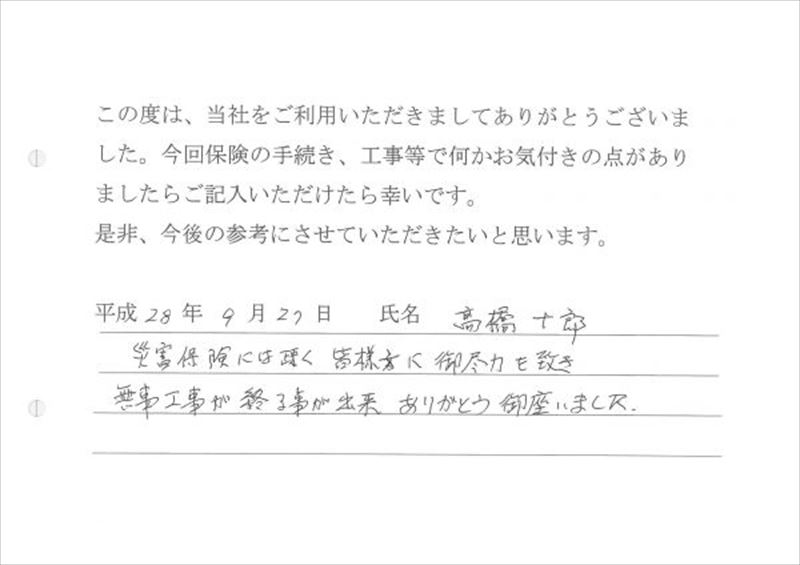 この度は、当社をご利用いただきましてありがとうございま
した。今回保険の手続き、工事等で何かお気付きの点があり
ましたらご記入いただけたら幸いです。
是非、今後の参考にさせていただきたいと思います。
平成28年9月27日 氏名 高橋十郎
災害保険には疎く 皆様方に 御尽力を致き
無事工事が終る事が出来 ありがとう御座いました.